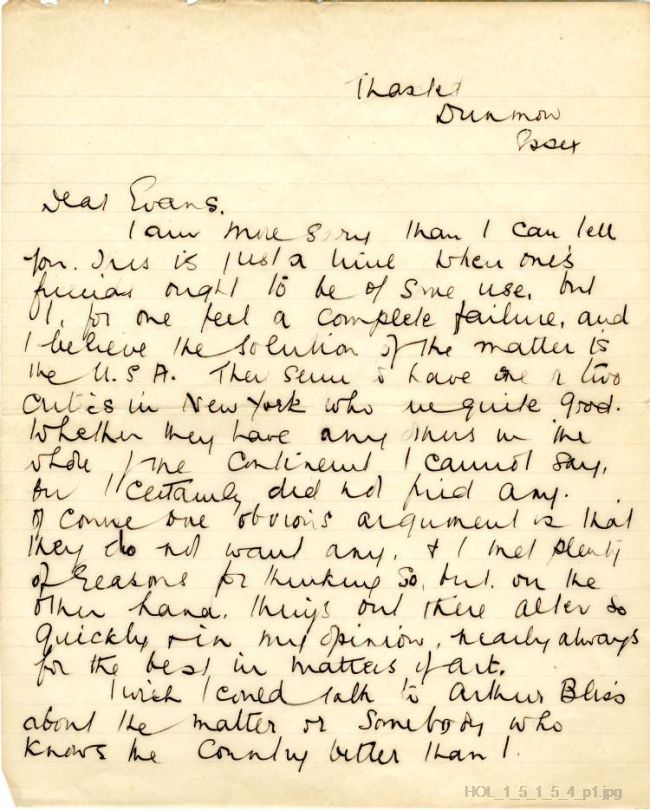 Thaxted
Dunmow
Essex
Dear Evans,
I am more sorry than I can tell
you. This is just a time when one's
friends ought to be of some use, but
I, for one feel a complete failure, and
I believe the solution of the matter is
the U.S.A. They seem to have one or two
critics in New York who are quite good.
Whether they have any others in the
whole of the Continent I cannot say,
but I certainly did not find any.
Of course one obvious argument is that
they do not want any, & I met plenty
of reasons for thinking so, but, on the
other hand, things out there alter so
quickly & in my opinion, nearly always
for the best in matters of art.
I wish I could talk to Arthur Bliss
about the matter or somebody who
knows the Country better than I.
HOL_1_5_1_5_4_p1.jpg